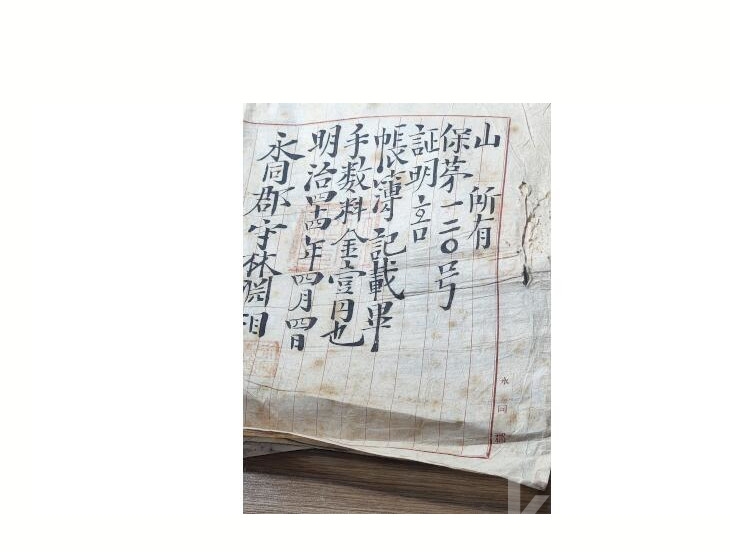 山 所有
保苐一二〇号
証明
帳簿 記載畢
手数料金壹円也
明治四十四年四月四日
永同郡守林淵相
永同郡